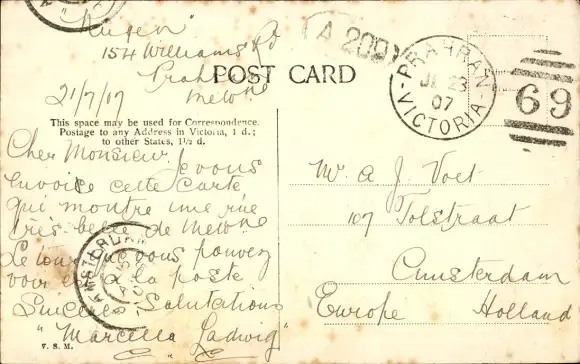 154 Williams Rd
Prahran
Melbne
21/7/07
POST CARD
A 200
PRAHRAN
JL 23
07
VICTORIA
69
This space may be used for Correspondence.
Postage to any Address in Victoria, 1 d.;
to other States, 1½ d.
Cher Monsieur, Je vous
envoie cette carte
qui montre une rue
très belle de Melbne
Le tour que vous pouvez
voir est la poste
Sincères Salutations
"Marcella Ladwig"
V. S. M.
AMSTERDAM
Mr. A. J. Voet
107 Tolstraat
Amsterdam
Europe Holland